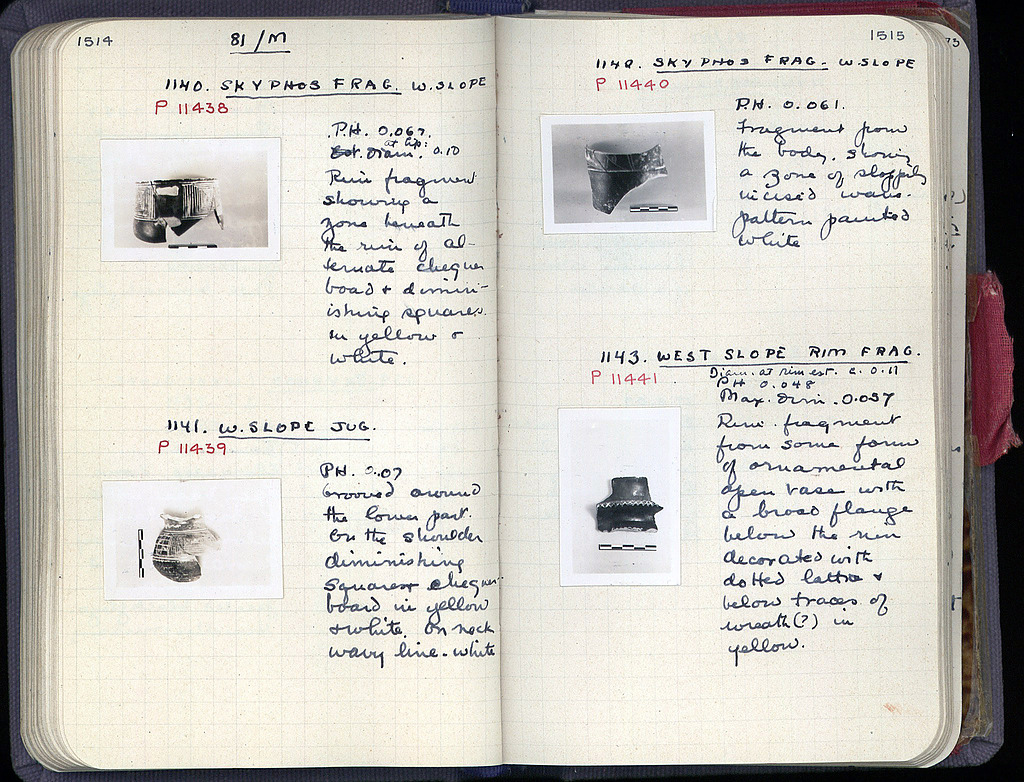 1514
81/M
1140. SKYPHOS FRAG. W. SLOPE
P 11438
P.H. 0.067.
at lip:
Est. Diam. 0.10
Rim fragment
showing a
zone beneath
the rim of al-
ternate chequer
board + dimin-
ishing squares
in yellow +
white.
1141. W. SLOPE JUG.
P 11439
PH. 0.07
Grooved around
the lower part.
On the shoulder
diminishing
squares + chequer
board in yellow
+ white. On neck
wavy line - white
1515
1142. SKYPHOS FRAG. W SLOPE
P 11440
P.H. 0.061.
Fragment from
the body, showing
a zone of sloppily
incised wave-
pattern painted
white
1143. WEST SLOPE RIM FRAG.
P 11441
Diam. at rim est. c. 0.11
PH 0.048
Max. Dim. 0.057
Rim fragment
from some form
of ornamental
open vase with
a broad flange
below the rim
decorated with
dotted lattice +
below traces of
wreath(?) in
yellow.